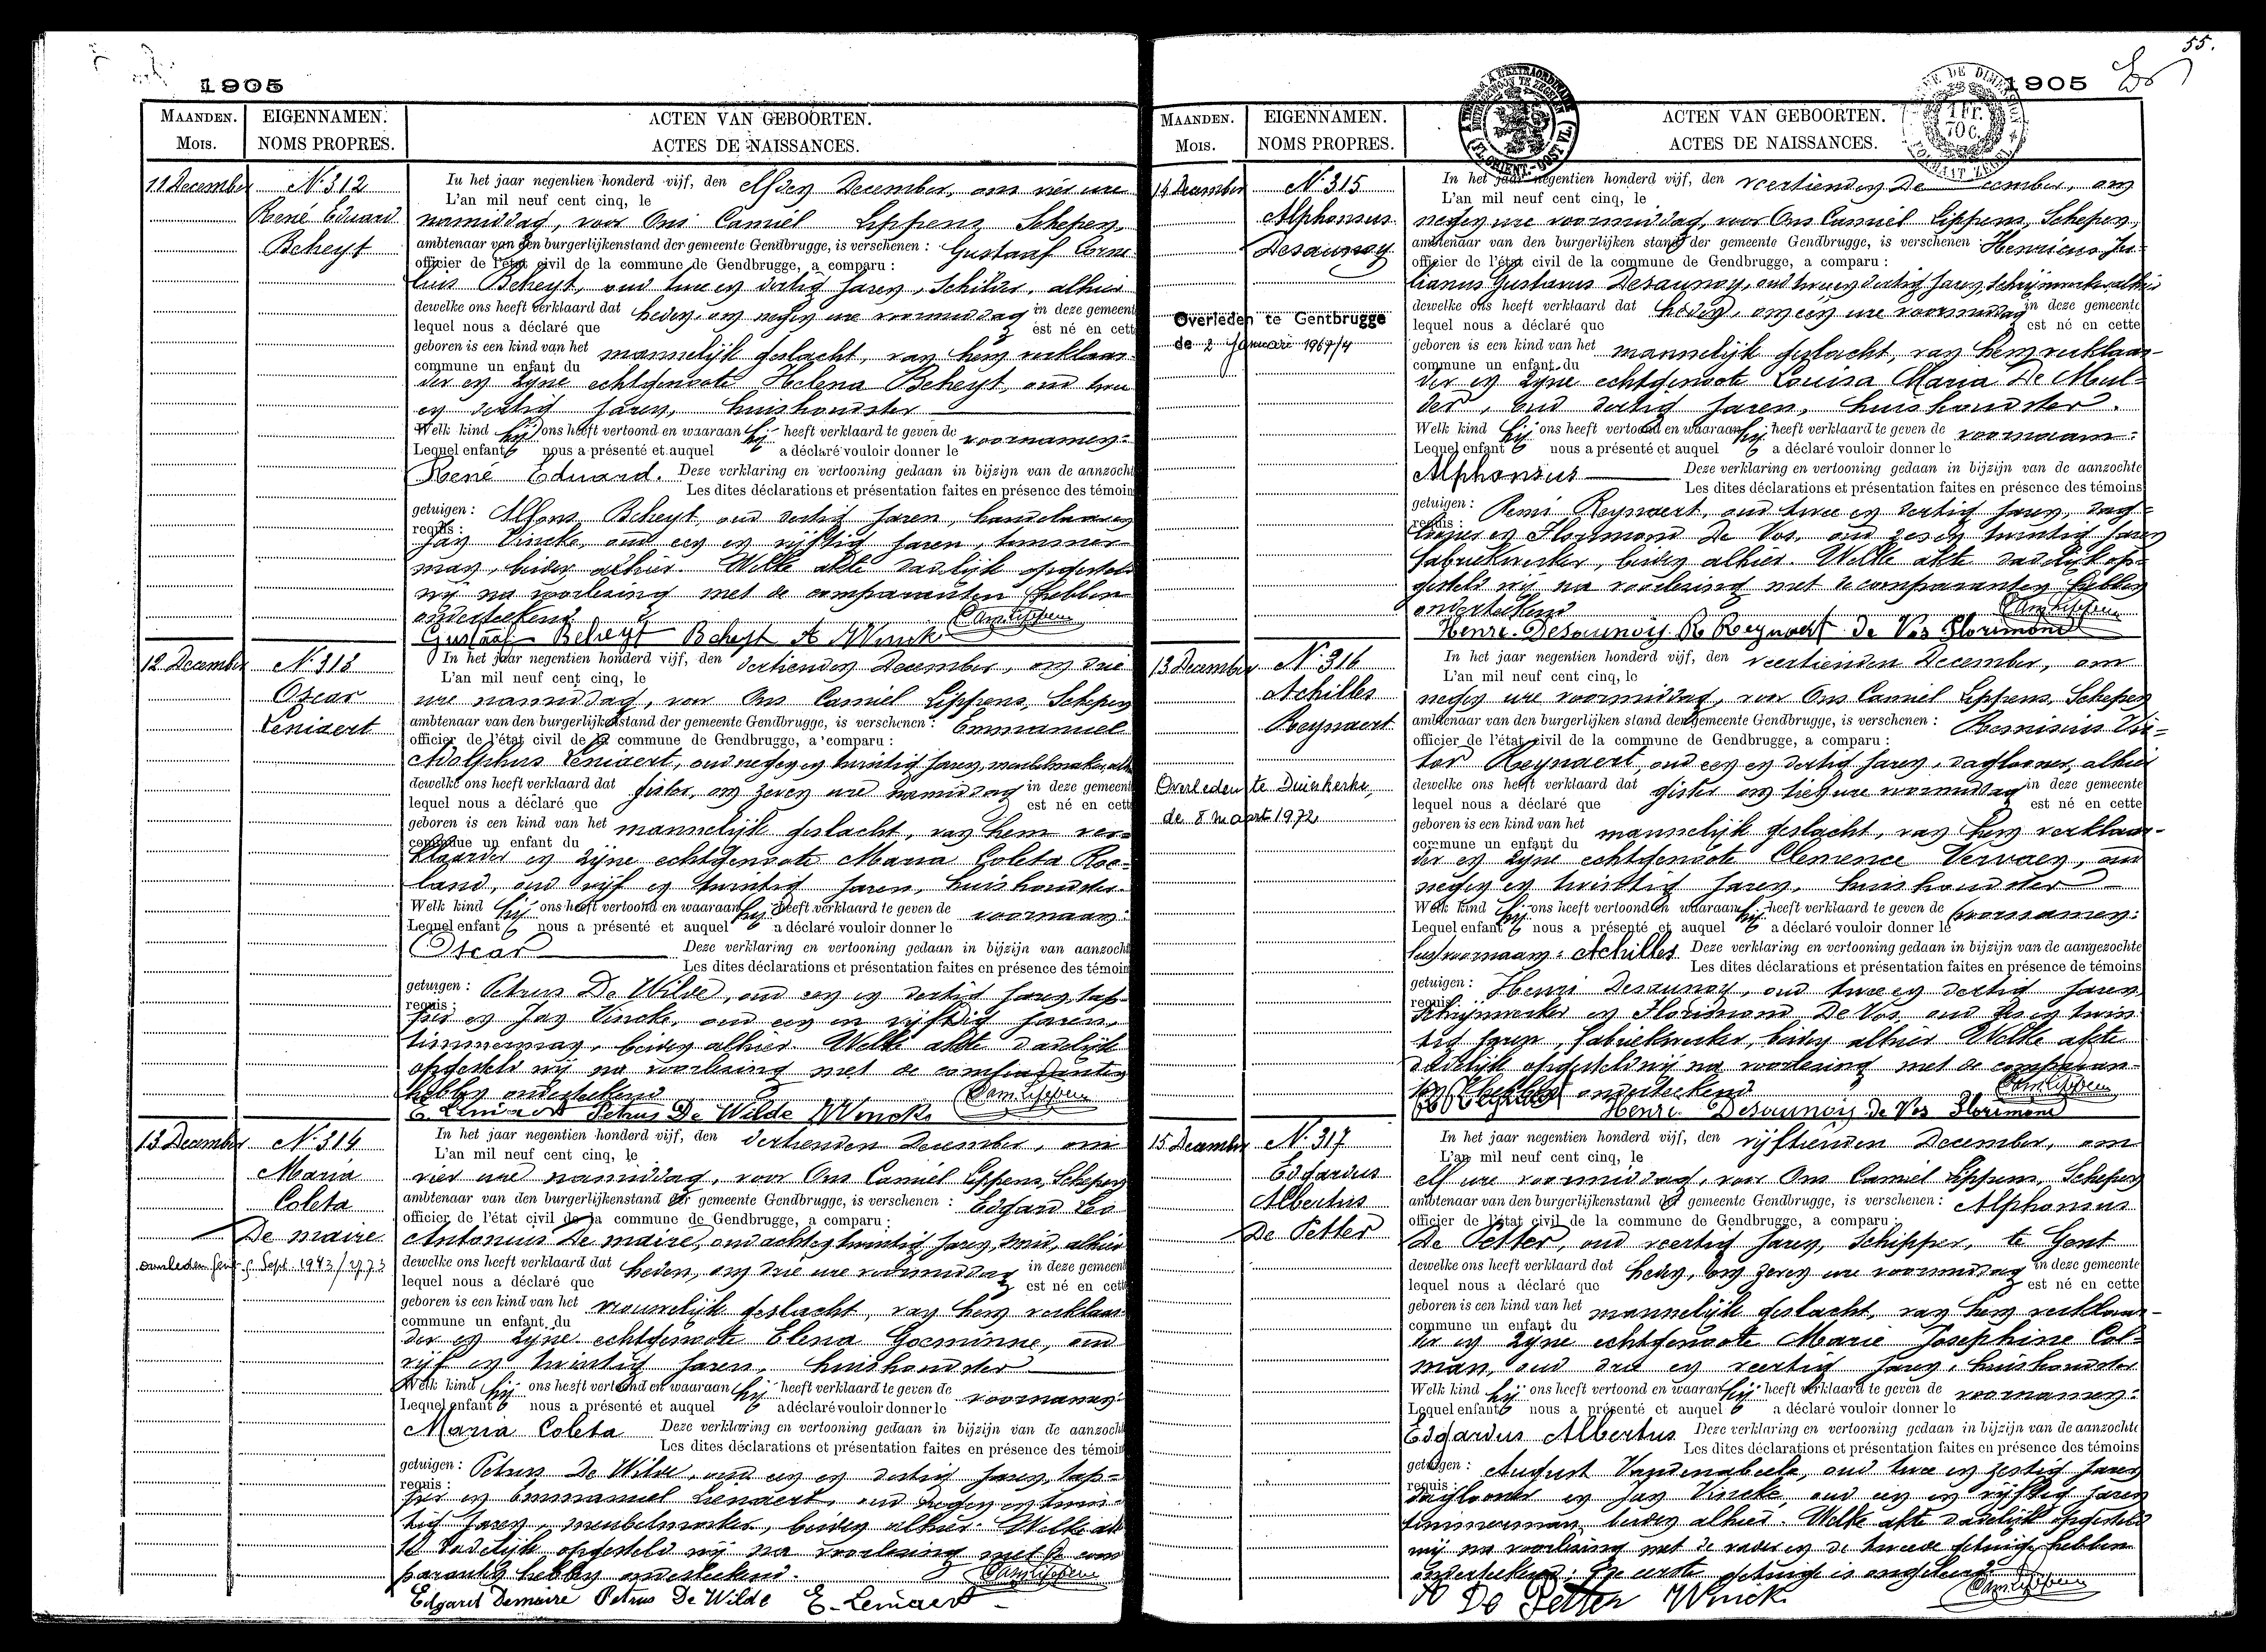 1905
MAANDEN.
Mois.
EIGENNAMEN.
NOMS PROPRES.
ACTEN VAN GEBOORTEN.
ACTES DE NAISSANCES.
11 December
N. 312
René Eduard
Beheyt
In het jaar negentien honderd vijf, den elfden December, om vier ure
L'an mil neuf cent cinq, le
namiddag, voor Ons Camiel Lippens, Schepen,
ambtenaar van den burgerlijkenstand der gemeente Gendbrugge, is verschenen : Gustaaf Corne-
officier de l'état civil de la commune de Gendbrugge, a comparu :
lius Beheyt, oud twee en dertig jaren, Schilder, alhier
dewelke ons heeft verklaard dat heden, om negen ure voormiddag in deze gemeent
lequel nous a déclaré que est né en cett
geboren is een kind van het mannelijk geslacht, van hem verklaar-
commune un enfant du
der en zijne echtgenoote Helena Beheyt, oud twee
en dertig jaren, huishoudster
Welk kind hij ons heeft vertoond en waaraan hij heeft verklaard te geven de voornamen:
Lequel enfant nous a présenté et auquel a déclaré vouloir donner le
René Eduard. Deze verklaring en vertooning gedaan in bijzijn van de aanzocht
Les dites déclarations et présentation faites en présence des témoin
getuigen : Alfons Beheyt, oud dertig jaren, handelaar en
requis :
Jan Vincke, oud een en vijftig jaren, timmer-
man, beiden alhier. Welke akte dadelijk opgesteld
wij na voorlezing met de comparanten hebben
onderteekend. Cam Lippens
Gustaaf Beheyt Beheyt A J Vinck
12 December
N. 313
Oscar
Leniaert
In het jaar negentien honderd vijf, den dertienden December, om drie
L'an mil neuf cent cinq, le
ure namiddag, voor Ons Camiel Lippens, Schepen
ambtenaar van den burgerlijkenstand der gemeente Gendbrugge, is verschenen : Emmanuel
officier de l'état civil de la commune de Gendbrugge, a comparu :
Adolphus Leniaert, oud negen en twintig jaren, meubelmaker, alh
dewelke ons heeft verklaard dat gister, om zeven ure namiddag in deze gemeent
lequel nous a déclaré que est né en cett
geboren is een kind van het mannelijk geslacht, van hem ver-
commune un enfant du
klaarder en zijne echtgenoote Maria Coleta Roe-
land, oud vijf en twintig jaren, huishoudster.
Welk kind hij ons heeft vertoond en waaraan hij heeft verklaard te geven de voornaam:
Lequel enfant nous a présenté et auquel a déclaré vouloir donner le
Oscar Deze verklaring en vertooning gedaan in bijzijn van aanzocht
Les dites déclarations et présentation faites en présence des témoin
getuigen : Petrus De Wilde, oud een en dertig jaren, tap-
requis :
per en Jan Vincke, oud een en vijftig jaren,
timmerman, beiden alhier. Welke akte dadelijk
opgesteld wij na voorlezing met de comparanten
hebben onderteekend Cam Lippens
E Leniaert Petrus De Wilde J Vinck
13 December
N. 314
Maria
Coleta
De maire
overleden Gent 5 Sept. 1973
In het jaar negentien honderd vijf, den dertienden December, om
L'an mil neuf cent cinq, le
vier ure namiddag, voor Ons Camiel Lippens, Schepen
ambtenaar van den burgerlijkenstand der gemeente Gendbrugge, is verschenen : Edgard Leo
officier de l'état civil de la commune de Gendbrugge, a comparu :
Antonius De maire, oud acht en twintig jaren, smid, alhier
dewelke ons heeft verklaard dat heden, om drie ure voormiddag in deze gemeent
lequel nous a déclaré que est né en cett
geboren is een kind van het vrouwelijk geslacht, van hem verklaar-
commune un enfant du
der en zijne echtgenoote Elena Goeminne, oud
vijf en twintig jaren, huishoudster
Welk kind hij ons heeft vertoond en waaraan hij heeft verklaard te geven de voornamen:
Lequel enfant nous a présenté et auquel a déclaré vouloir donner le
Maria Coleta Deze verklaring en vertooning gedaan in bijzijn van de aanzocht
Les dites déclarations et présentation faites en présence des témoin
getuigen : Petrus De Wilde, oud een en dertig jaren, tap-
requis :
per en Emmanuel Lenaert, oud negen en twin-
tig jaren, meubelmaker, beiden alhier. Welke ak-
te dadelijk opgesteld wij na voorlezing met de com-
paranten hebben onderteekend. Cam Lippens
Edgard Demaire Petrus De Wilde E. Leniaert
55.
1905
MAANDEN.
Mois.
EIGENNAMEN.
NOMS PROPRES.
ACTEN VAN GEBOORTEN.
ACTES DE NAISSANCES.
14 December
N. 315
Alphonsus
Desaunoy
Overleden te Gentbrugge
de 2 Januari 1967/4
In het jaar negentien honderd vijf, den veertienden December, om
L'an mil neuf cent cinq, le
negen ure voormiddag, voor Ons Camiel Lippens, Schepen,
ambtenaar van den burgerlijken stand der gemeente Gendbrugge, is verschenen : Henricus Ju-
officier de l'état civil de la commune de Gendbrugge, a comparu :
lianus Gustavus Desaunoy, oud twee en dertig jaren, schrijnwerker, alhier
dewelke ons heeft verklaard dat heden, om een ure voormiddag in deze gemeente
lequel nous a déclaré que est né en cette
geboren is een kind van het mannelijk geslacht, van hem verklaar-
commune un enfant du
der en zijne echtgenoote Louisa Maria De Mul-
der, oud dertig jaren, huishoudster.
Welk kind hij ons heeft vertoond en waaraan hij heeft verklaard te geven de voornaam:
Lequel enfant nous a présenté et auquel a déclaré vouloir donner le
Alphonsus Deze verklaring en vertooning gedaan in bijzijn van de aanzochte
Les dites déclarations et présentation faites en présence des témoins
getuigen : Remi Reynaert, oud twee en dertig jaren, dag-
requis :
looner en Florimond De Vos, oud zes en twintig jaren
fabriekwerker, beiden alhier. Welke akte dadelijk op-
gesteld wij na voorlezing met de comparanten hebben
onderteekend Cam Lippens
Henri Desaunois R Reynaert de Vos Florimond
13 December
N. 316
Achilles
Reynaert
Overleden te Duinkerke,
de 8 maart 1972
In het jaar negentien honderd vijf, den veertienden December, om
L'an mil neuf cent cinq, le
negen ure voormiddag, voor Ons Camiel Lippens, Schepen
ambtenaar van den burgerlijken stand der gemeente Gendbrugge, is verschenen : Remisius Vic-
officier de l'état civil de la commune de Gendbrugge, a comparu :
tor Reynaert, oud een en dertig jaren, daglooner, alhier
dewelke ons heeft verklaard dat gister om tien ure voormiddag in deze gemeente
lequel nous a déclaré que est né en cette
geboren is een kind van het mannelijk geslacht, van hem verklaar-
commune un enfant du
der en zijne echtgenoote Clemence Vervaen, oud
negen en twintig jaren, huishoudster
Welk kind hij ons heeft vertoond en waaraan hij heeft verklaard te geven de voornamen:
Lequel enfant nous a présenté et auquel a déclaré vouloir donner le
voornaam: Achilles Deze verklaring en vertooning gedaan in bijzijn van de aangezochte
Les dites déclarations et présentation faites en présence de témoins
getuigen : Henri Desaunoy, oud twee en dertig jaren
requis
schrijnwerker en Florimond De Vos oud zes en twin-
tig jaren, fabriekwerker, beiden alhier Welke akte
dadelijk opgesteld wij na voorlezing met de comparan-
ten hebben onderteekend Cam Lippens
R Reynaert Henri Desaunois de Vos Florimond
15 December
N. 317
Edgardus
Albertus
De Petter
In het jaar negentien honderd vijf, den vijftienden December, om
L'an mil neuf cent cinq, le
elf ure voormiddag, voor Ons Camiel Lippens, Schepen
ambtenaar van den burgerlijkenstand der gemeente Gendbrugge, is verschenen : Alphonsus
officier de l'état civil de la commune de Gendbrugge, a comparu :
De Petter, oud veertig jaren, Schipper, te Gent
dewelke ons heeft verklaard dat heden, om zeven ure voormiddag in deze gemeente
lequel nous a déclaré que est né en cette
geboren is een kind van het mannelijk geslacht, van hem verklaar-
commune un enfant du
der en zijne echtgenoote Marie Josephine Col-
man, oud drie en veertig jaren, huishoudster
Welk kind hij ons heeft vertoond en waaran hij heeft verklaard te geven de voornamen:
Lequel enfant nous a présenté et auquel a déclaré vouloir donner le
Edgardus Albertus Deze verklaring en vertooning gedaan in bijzijn van de aanzochte
Les dites déclarations et présentation faites en présence des témoins
getuigen : August Vandenabeele, oud twee en zestig jaren
requis :
daglooner en Jan Vincke, oud een en vijftig jaren
timmerman, beiden alhier. Welke akte dadelijk opgesteld
wij na voorlezing met de vader en de tweede getuige hebben
onderteekend; de eerste getuige is ongeleerd Cam Lippens
A De Petter J Vinck